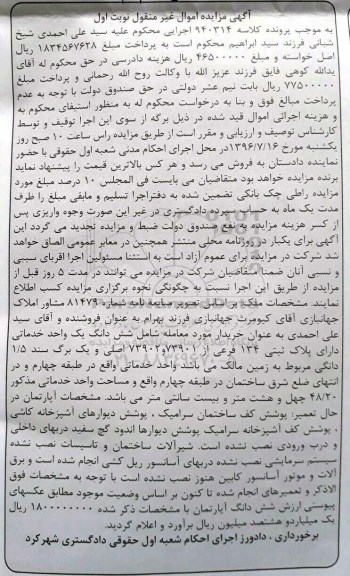 آگهی مزایده اموال غیر منقول نوبت اول
به موجب پرونده کلاسه ۹۴۰۳۱۴ اجرایی محکوم علیه سید علی احمدی شیخ
شبانی فرزند سید ابراهیم محکوم است به پرداخت مبلغ ۱۸۳۴۵۶۷۶۲۸ ریال
اصل خواسته و مبلغ ۴۶۵۰۰۰۰۰ ریال هزینه دادرسی در حق محکوم له آقای
یدالله کوهی فایق فرزند عزیز الله با وکالت روح الله رحمانی و پرداخت مبلغ
۷۷۵۰۰۰۰۰ ریال بابت نیم عشر دولتی در حق صندوق دولت با توجه به عدم
پرداخت مبالغ فوق و بنا به درخواست محکوم له به منظور استیفای محکوم به
و هزینه اجرائی اموال قید شده در ذیل برگه از سوی این اجرا توقیف و توسط
کارشناس توصیف و ارزیابی و مقرر است از طریق مزایده راس ساعت ۱۰ صبح روز
یکشنبه مورخ ۱۳۹۶/۷/۱۶ در محل اجرای احکام مدنی شعبه اول حقوقی با حضور
نماینده دادستان به فروش می رسد و هر کس بالاترین قیمت را پیشنهاد نماید
برنده مزایده خواهد بود متقاضیان می بایست فی المجلس ۱۰ درصد مبلغ مورد
مزایده راطی چک بانکی تضمین شده به دفتراجرا تسلیم و مابقی مبلغ را ظرف
مدت یک ماه به حساب سپرده دادگستری در غیر این صورت وجوه واریزی پس
از کسر هزینه مزایده به نفع صندوق دولت ضبط و مزایده تجدید می گردد این
آگهی برای یکبار در روزنامه محلی منتشر همچنین در معابر عمومی الصاق خواهد
شد شرکت در مزایده برای عموم آزاد است به استثنا مسئولین اجرا اقربای سببی
و نسبی آنان ضمنا متقاضیان شرکت در مزایده می توانند در مدت ۵ روز قبل از
مزایده از طریق این اجرا نسبت به چگونگی نحوه برگزاری مزایده کسب اطلاع
نمایند. مشخصات ملک: بر اساس تصویر مبایعه نامه شماره ۸۱۴۷۹ مشاور املاک
جهانبازی آقای کیومرث جهانبازی فرزند بهرام به عنوان فروشنده و آقای سید
علی احمدی به عنوان خریدار مورد معامله شامل شش دانگ یک واحد خدماتی
دارای پلاک ثبتی ۱۳۴ فرعی از ۷۳۹۰۱و۷۳۹۰۲ اصلی و یک برگ سند ۱/۵
دانگی مربوط به زمین مالک می باشد واحد خدماتی واقع در طبقه چهارم و در
انتهای ضلع شرق ساختمان در طبقه چهارم واقع و مساحت واحد خدماتی مذکور
۴۸/۲۰ چهل و هشت متر و بیست سانتی متر می باشد. مشخصات آپارتمان در
حال تعمیر: پوشش کف ساختمان سرامیک، پوشش دیوارهای آشپزخانه کاشی
، پوشش کف آشپزخانه سرامیک پوشش دیوارها اندود گچ سفید دربهای داخلی
و درب ورودی نصب نشده است. شیرآلات ساختمان و تاسیسات نصب نشده
سیستم سرمایشی نصب نشده دربهای آسانسور ریل کشی انجام شده است و برق
آلات و موتور آسانسور کابین هنوز نصب نشده است با توجه به مشخصات فوق
الاذکر و تعمیرهای انجام شده تا کنون بر اساس وضعیت موجود مطابق عکسهای
پیوستی ارزش شش دانگ آپارتمان با مشخصات ذکر شده ۱۸۰۰۰۰۰۰۰۰ ریال
یک میلیاردو هشتصد میلیون ریال برآورد و اعلام گردید.
برخورداری ، دادورز اجرای احکام شعبه اول حقوقی دادگستری شهرکرد